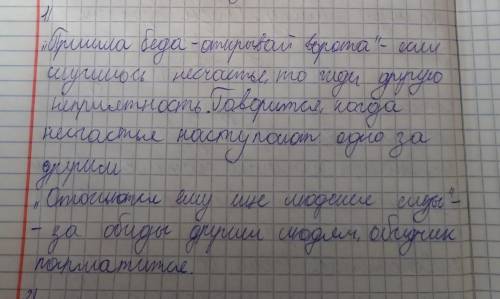 1)
„Пришла беда - открывай ворота" - если
случилось несчастье, то жди другую
неприятность. Говорится, когда
несчастья наступают одно за
другим
„Отольются ему еще людские слезы" -
- за обиды другим людям, обидчик